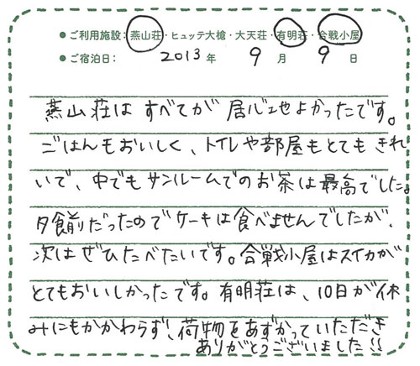 ●ご利用施設：燕山荘・ヒュッテ大槍・大天荘・有明荘・合戦小屋
●ご宿泊日： 2013年 9月 9日
燕山荘は すべてが 居心地よかったです。
ごはんもおいしく、トイレや部屋もとてもきれ
いで、中でもサンルームでのお茶は最高でした。
夕食前だったのでケーキは食べませんでしたが、
次はぜひたべたいです。合戦小屋はスイカが
とてもおいしかったです。有明荘は、10日が休
みにもかかわらず、荷物をあずかっていただき
ありがとうございました!!